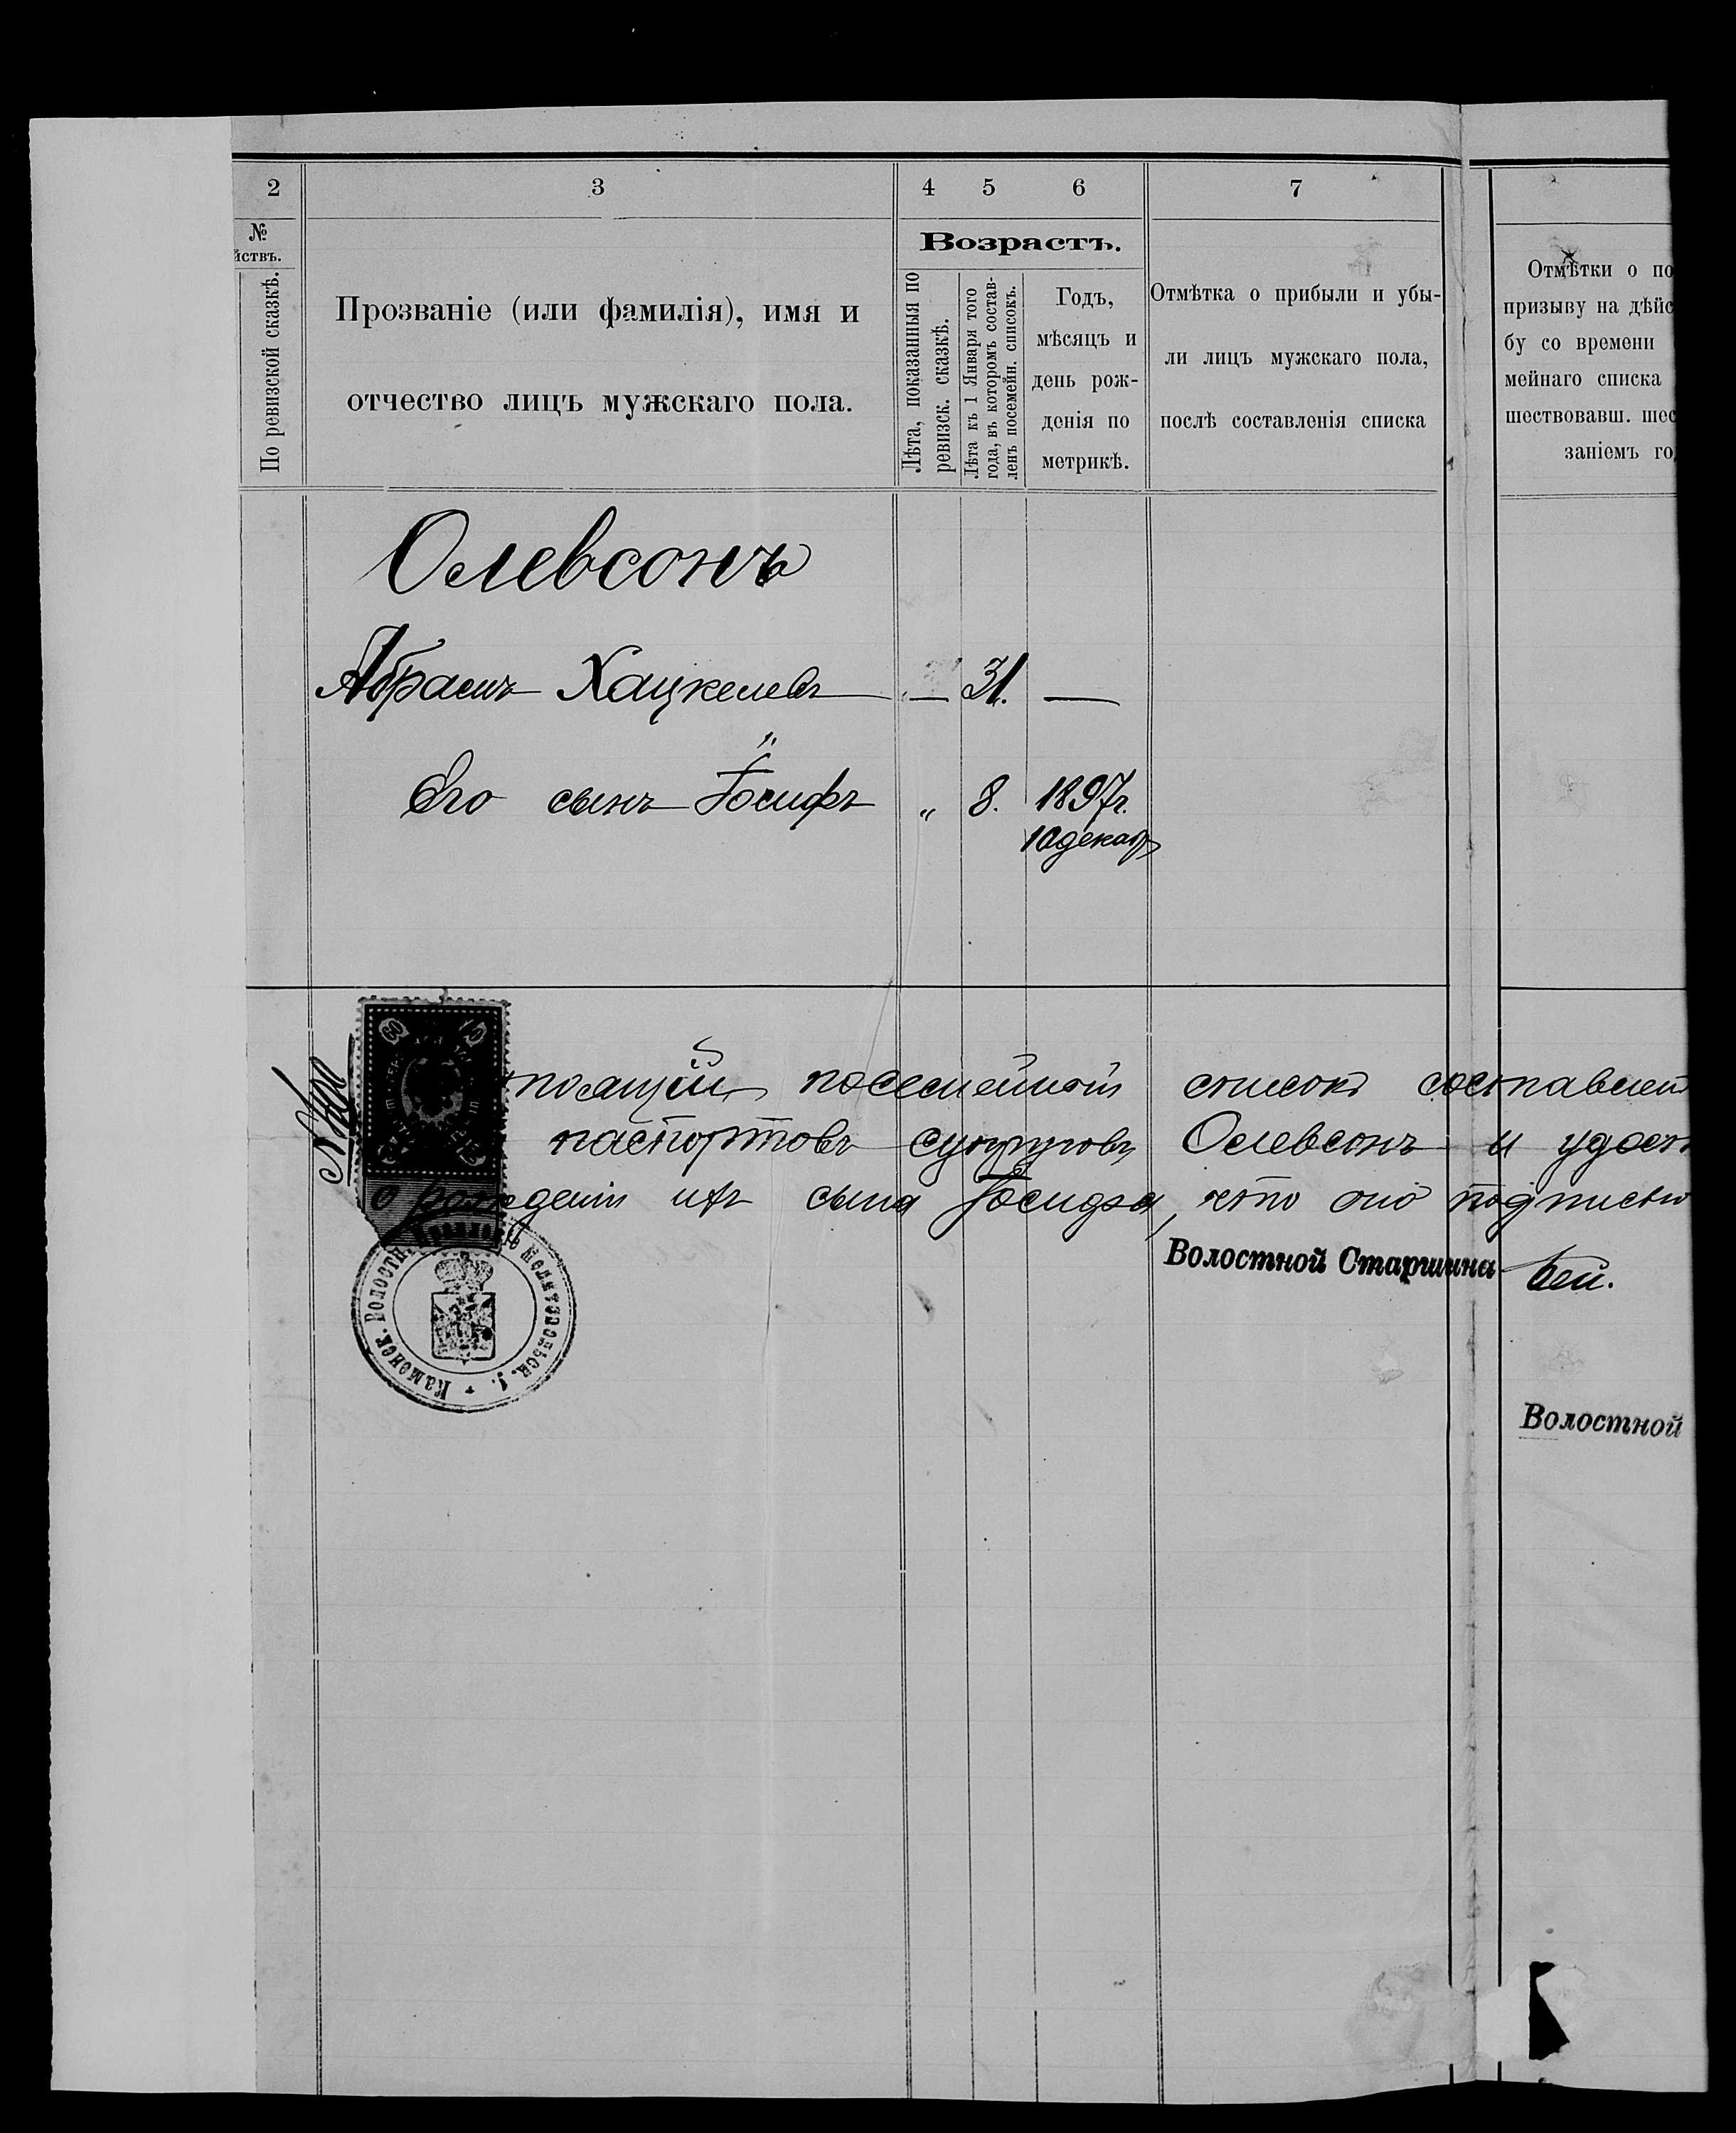 2
3
4 5 6
7
№
йствъ.
По ревизской сказкѣ.
Прозваніе (или фамилія), имя и
отчество лицъ мужскаго пола.
Возрастъ.
Лѣта, показанныя по
ревизск. сказкѣ.
Лѣта къ 1 Января того
года, въ которомъ состав-
ленъ посемейн. списокъ.
Годъ,
мѣсяцъ и
день рож-
денія по
метрикѣ.
Отмѣтка о прибыли и убы-
ли лицъ мужскаго пола,
послѣ составленія списка
Отмѣтки о по
призыву на дѣйс
бу со времени
мейнаго списка
шествовавш. шес
заніемъ го
Олевсонъ
Абрамъ Хацкелевъ — 31. —
Его сынъ Іосифъ „ 8. 1897г.
10 декаб
тоящій посемейный списокъ составлен
паспортовъ супруговъ Олевсонъ и удост
о рожденіи ихъ сына Іосифа, что оно подписью
Волостной Старшина
Волостной
Каменск. Волостн. Правленіе Мелитопольск. у.